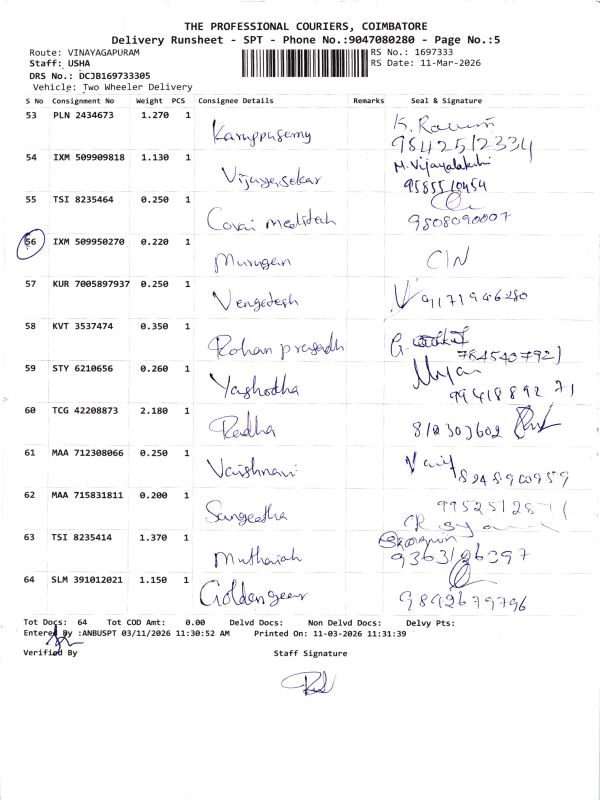 THE PROFESSIONAL COURIERS, COIMBATORE
Delivery Runsheet - SPT - Phone No.:9047080280 - Page No.:5
Route: VINAYAGAPURAM
RS No.: 1697333
Staff: USHA
RS Date: 11-Mar-2026
DRS No.: DCJB169733305
Vehicle: Two Wheeler Delivery
S No Consignment No Weight PCS Consignee Details Remarks Seal & Signature
53 PLN 2434673 1.270 1
Karuppusamy
9842512334
54 IXM 509909818 1.130 1
M. Vijayalakshi
Vijayasekar
55 TSI 8235464 0.250 1
Covai meditech
9808090007
56 IXM 509950270 0.220 1
Murugan CIN
57 KUR 7005897937 0.250 1
Vengatesh
58 KVT 3537474 0.350 1
Rohan prasadh
59 STY 6210656 0.260 1
Yashodha
60 TCG 42208873 2.180 1
Radha
61 MAA 712308066 0.250 1
Vaishnavi
62 MAA 715831811 0.200 1
Sangeetha
63 TSI 8235414 1.370 1
Muthaiah
64 SLM 391012021 1.150 1
Goldengear 9842679796
Tot Docs: 64 Tot COD Amt: 0.00 Delvd Docs: Non Delvd Docs: Delvy Pts:
Entered By :ANBUSPT 03/11/2026 11:30:52 AM Printed On: 11-03-2026 11:31:39
Verified By Staff Signature